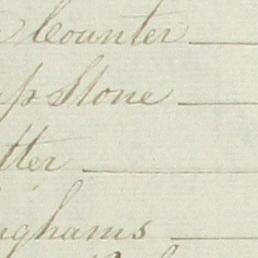 Counter
Stone
tter
nghams